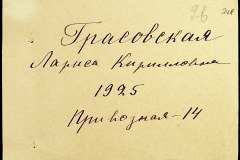 26
Грасовская
Лариса Кирилловна
1925
Привозная-14